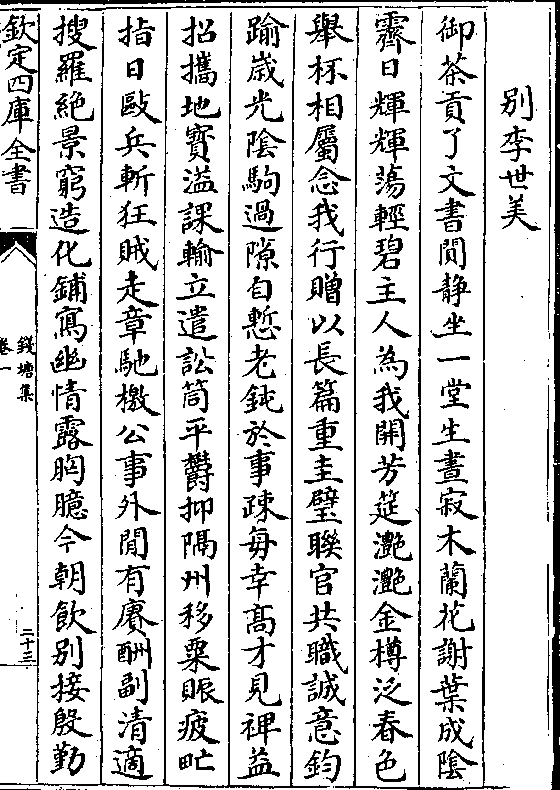 別李世美
御茶貢了文書間靜坐一堂生晝寂木蘭花謝葉成陰
霽日輝輝蕩輕碧主人為我開芳筵灧灧金樽泛春色
舉杯相屬念我行贈以長篇重圭璧聯官共職誠意鈞
踰嵗光陰駒過隙自慙老鈍於事疎每幸髙才見裨益
招攜地寶溢課輸立遣訟筒平欝抑隔州移粟賑疲甿
指日敺兵斬狂賊走章馳檄公事外閒有賡酬副清適
搜羅絶景窮造化鋪寫幽情露胷臆今朝飲別接殷勤
欽定四庫全書
錢塘集
卷一
二十三